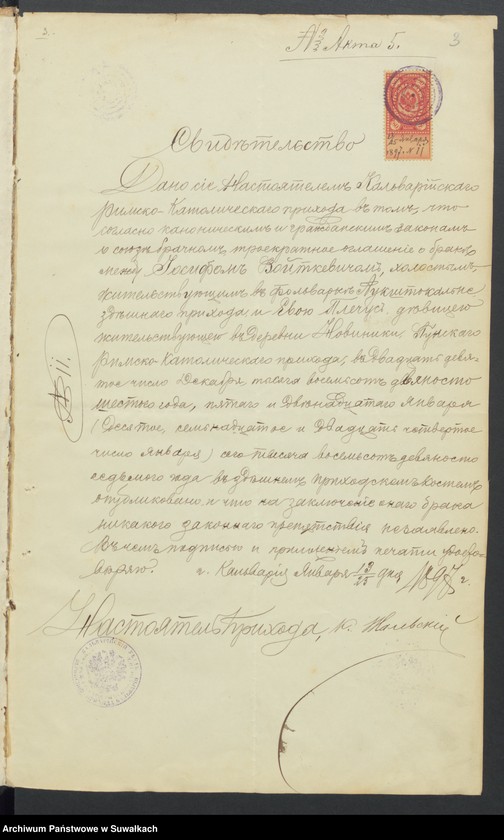 3.
№ 3 Акта 5.
3
13/25 Января
1897. № 11
Свидѣтельство
Дано сіе Настоятелемъ Кальварійскаго
Римско-Католическаго прихода въ томъ, что
согласно каноническимъ и гражданскимъ законамъ
о союзѣ брачномъ, троекратное оглашеніе о бракѣ
между Іосифомъ Войткевичомъ, холостымъ,
жительствующимъ въ фольваркѣ
здѣшняго прихода и Евою дѣвицею
жительствующею въ деревни Новиники,
Римско-Католическаго прихода, въ двадцать девя-
тое число Декабря, тысяча восемьсотъ девяносто
шестого года, пятаго и двѣнадцатаго Января
(Десятое, семьнадцатое и двадцать четвертое
число Января) сего тысяча восемьсотъ девяносто
седьмого года въ здѣшнемъ приходскомъ костелѣ
опубликовано и что на заключеніе онаго брака
никакого законнаго препятствія незаявлено.
Въ чемъ подписью и приложеніемъ печати удосто-
вѣряю.
г. Кальварія Января 13/25 дня 1897 г.
Настоятель Прихода, К.
№ 11.
Archiwum Państwowe w Suwałkach